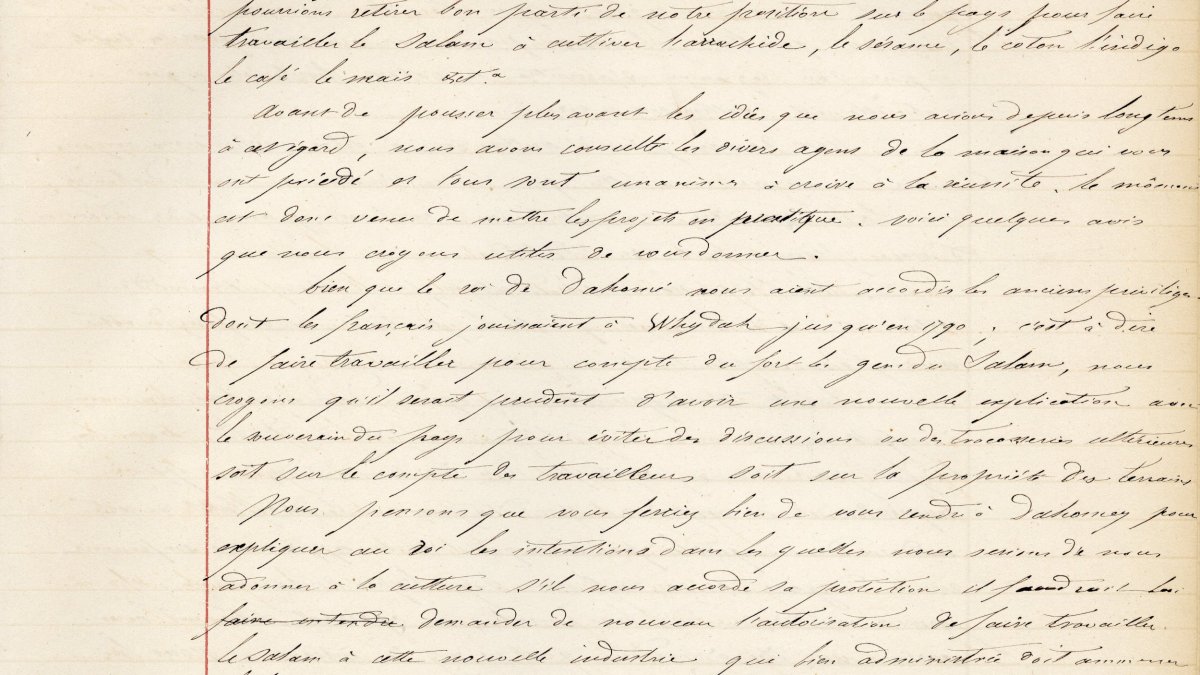 pourrions retirer bon parti de notre position sur le pays pour faire
travailler le Salam à cultiver l'arrachide, le sésame, le coton l'indigo
le café le mais &ct.a
Avant de pousser plus avant les idées que nous avions depuis longtems
à cet égard, nous avons consulté les divers agens de la maison qui vous
ont précédé et tous sont unanimes à croire à la réussite. le môment
est donc venu de mettre les projets en pratique. voici quelques avis
que nous croyons utiles de vous donner.
bien que le roi de Dahomé nous aient accordés les anciens privilèges
dont les français jouissaient à Whydah jusqu'en 1790, c'est à dire
de faire travailler pour compte du fort les gens du Salam, nous
croyons qu'il serait prudent d'avoir une nouvelle explication avec
le souverain du pays pour éviter des discussions ou des tracasseries ultérieures
soit sur le compte des travailleurs soit sur la propriété des terrains
Nous pensons que vous feriez bien de vous rendre à Dahomey pour
expliquer au roi les intentions dans les quelles nous serions de nous
adonner à la culture s'il nous accorde sa protection il faudrait lui
faire entendre demander de nouveau l'autorisation de faire travailler
le Salam à cette nouvelle industrie qui bien administrée doit ammener